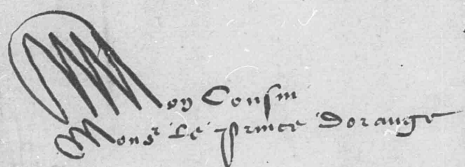 Mon Cousin
Monsr le prince dorange